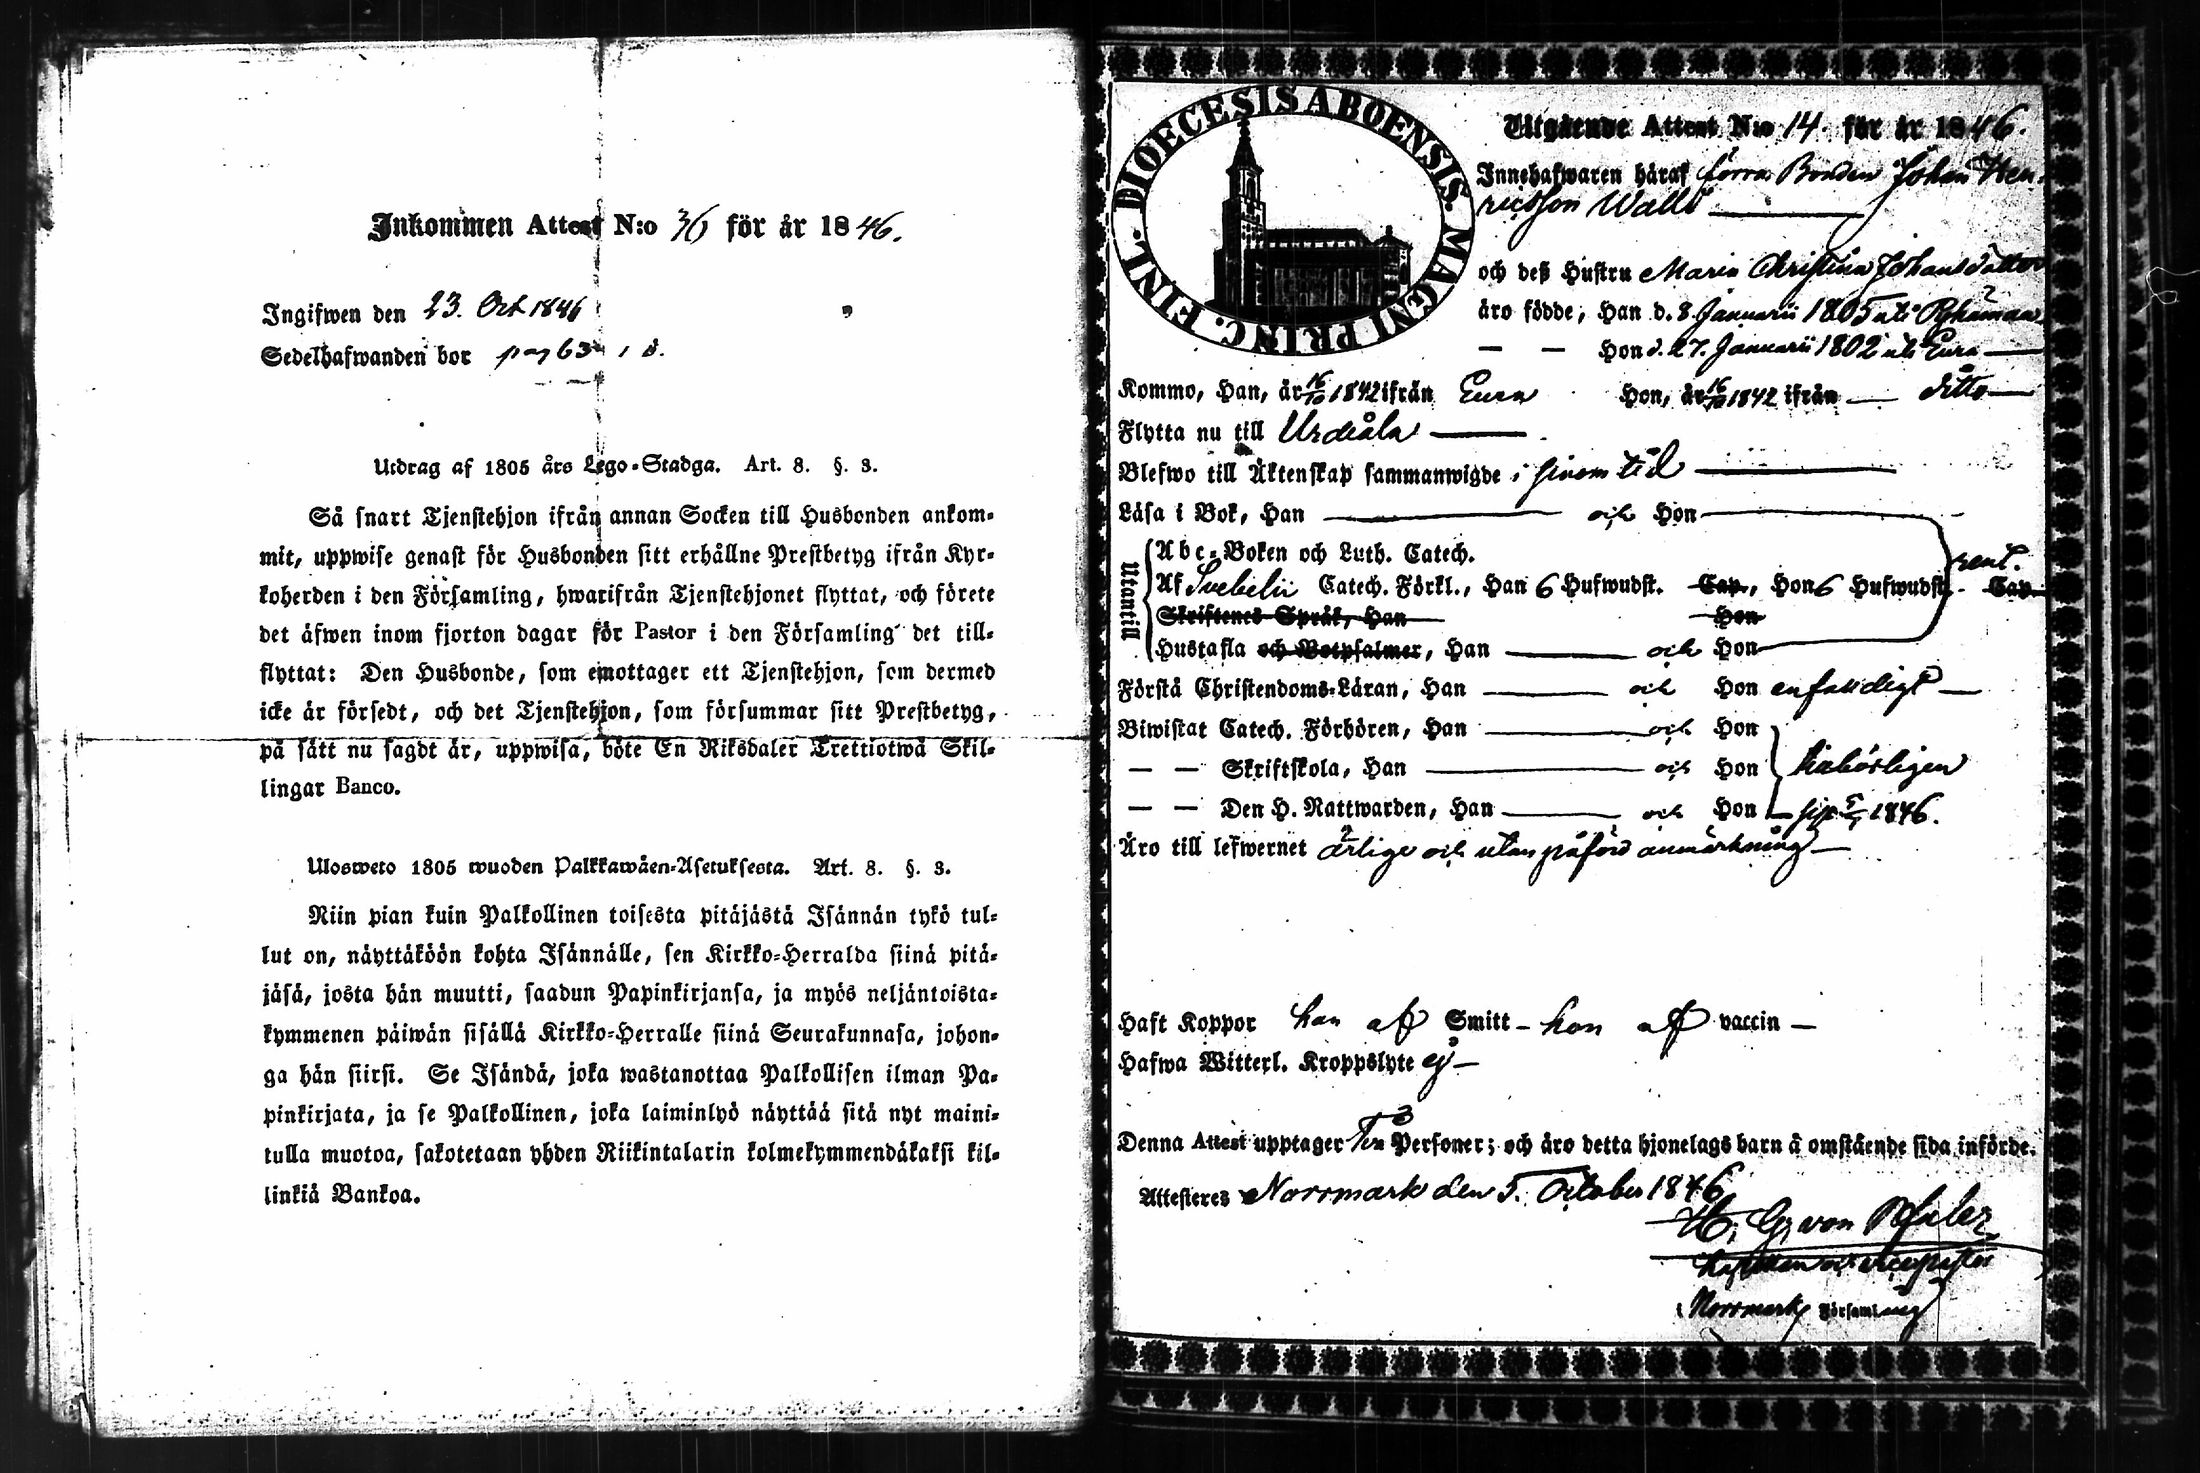 Inkommen Attest N:o 36 för år 1846.
Ingifwen den 23. Oct 1846
Sedelhafwanden bor pag 63
Utdrag af 1805 års Lego-Stadga. Art. 8. §. 3.
Så snart Tjenstehjon ifrån annan Socken till Husbonden ankom-
mit, uppwise genast för Husbonden sitt erhållne Prestbetyg ifrån Kyr-
koherden i den Församling, hwarifrån Tjenstehjonet flyttat, och förete
det äfwen inom fjorton dagar för Pastor i den Församling det till-
flyttat: Den Husbonde, som emottager ett Tjenstehjon, som dermed
icke är försedt, och det Tjenstehjon, som försummar sitt Prestbetyg,
på sätt nu sagdt är, uppwisa, böte En Riksdaler Trettiotwå Skil-
lingar Banco.
Ulosweto 1805 wuoden Palkkawäen-Asetuksesta. Art. 8. §. 3.
Niin pian kuin Palkollinen toisesta pitäjästä Isännän tykö tul-
lut on, näyttäköön kohta Isännälle, sen Kirkko-Herralda siinä pitä-
jäsä, josta hän muutti, saadun Papinkirjansa, ja myös neljäntoista-
kymmenen päiwän sisällä Kirkko-Herralle siinä Seurakunnasa, johon-
ga hän siirsi. Se Isändä, joka wastanottaa Palkollisen ilman Pa-
pinkirjata, ja se Palkollinen, joka laiminlyö näyttää sitä nyt maini-
tulla muotoa, sakotetaan yhden Riikintalarin kolmekymmendäkaksi kil-
linkiä Bankoa.
DIOECESIS ABOENSIS. MAGNI PRINC. FINL.
Utgående Attest N:o 14. för år 1846.
Innehafwaren häraf förra Bonden Johan Hen-
ricsson Walls
och deß Hustru Maria Christina Johansdotter
äro födde, Han d. 8 Januarii 1805 uti
— — Hon d. 27. Januarii 1802 uti Eura
Kommo, Han, år 16/10 1842 ifrån Eura Hon, år 16/10 1842 ifrån — ditto —
Flytta nu till Urdiala
Blefwo till Äktenskap sammanwigde i sinom tid
Läsa i Bok, Han — och Hon
Utantill
Abc-Boken och Luth. Catech.
rent.
Af Svebelii Catech. Förkl., Han 6 Hufwudst. Cap., Hon 6 Hufwudst. Cap.
Skriftenes Språk, Han Hon
Hustafla och Botpsalmer, Han — och Hon
Förstå Christendoms-Läran, Han — och Hon enfaldigt —
Biwistat Catech. Förhören, Han — och Hon
— — Skriftskola, Han — och Hon behörligen
— — Den H. Nattwarden, Han — och Hon 1846.
Äro till lefwernet ärlige och utan påförd anmärkning —
Haft Koppor han af Smitt - hon af vaccin —
Hafwa Witterl. Kroppslyte ej —
Denna Attest upptager Personer; och äro detta hjonelags barn å omstående sida införde.
Attesteres Norrmark den 5. October 1846
H. G. von Pfaler
i Norrmark Församling